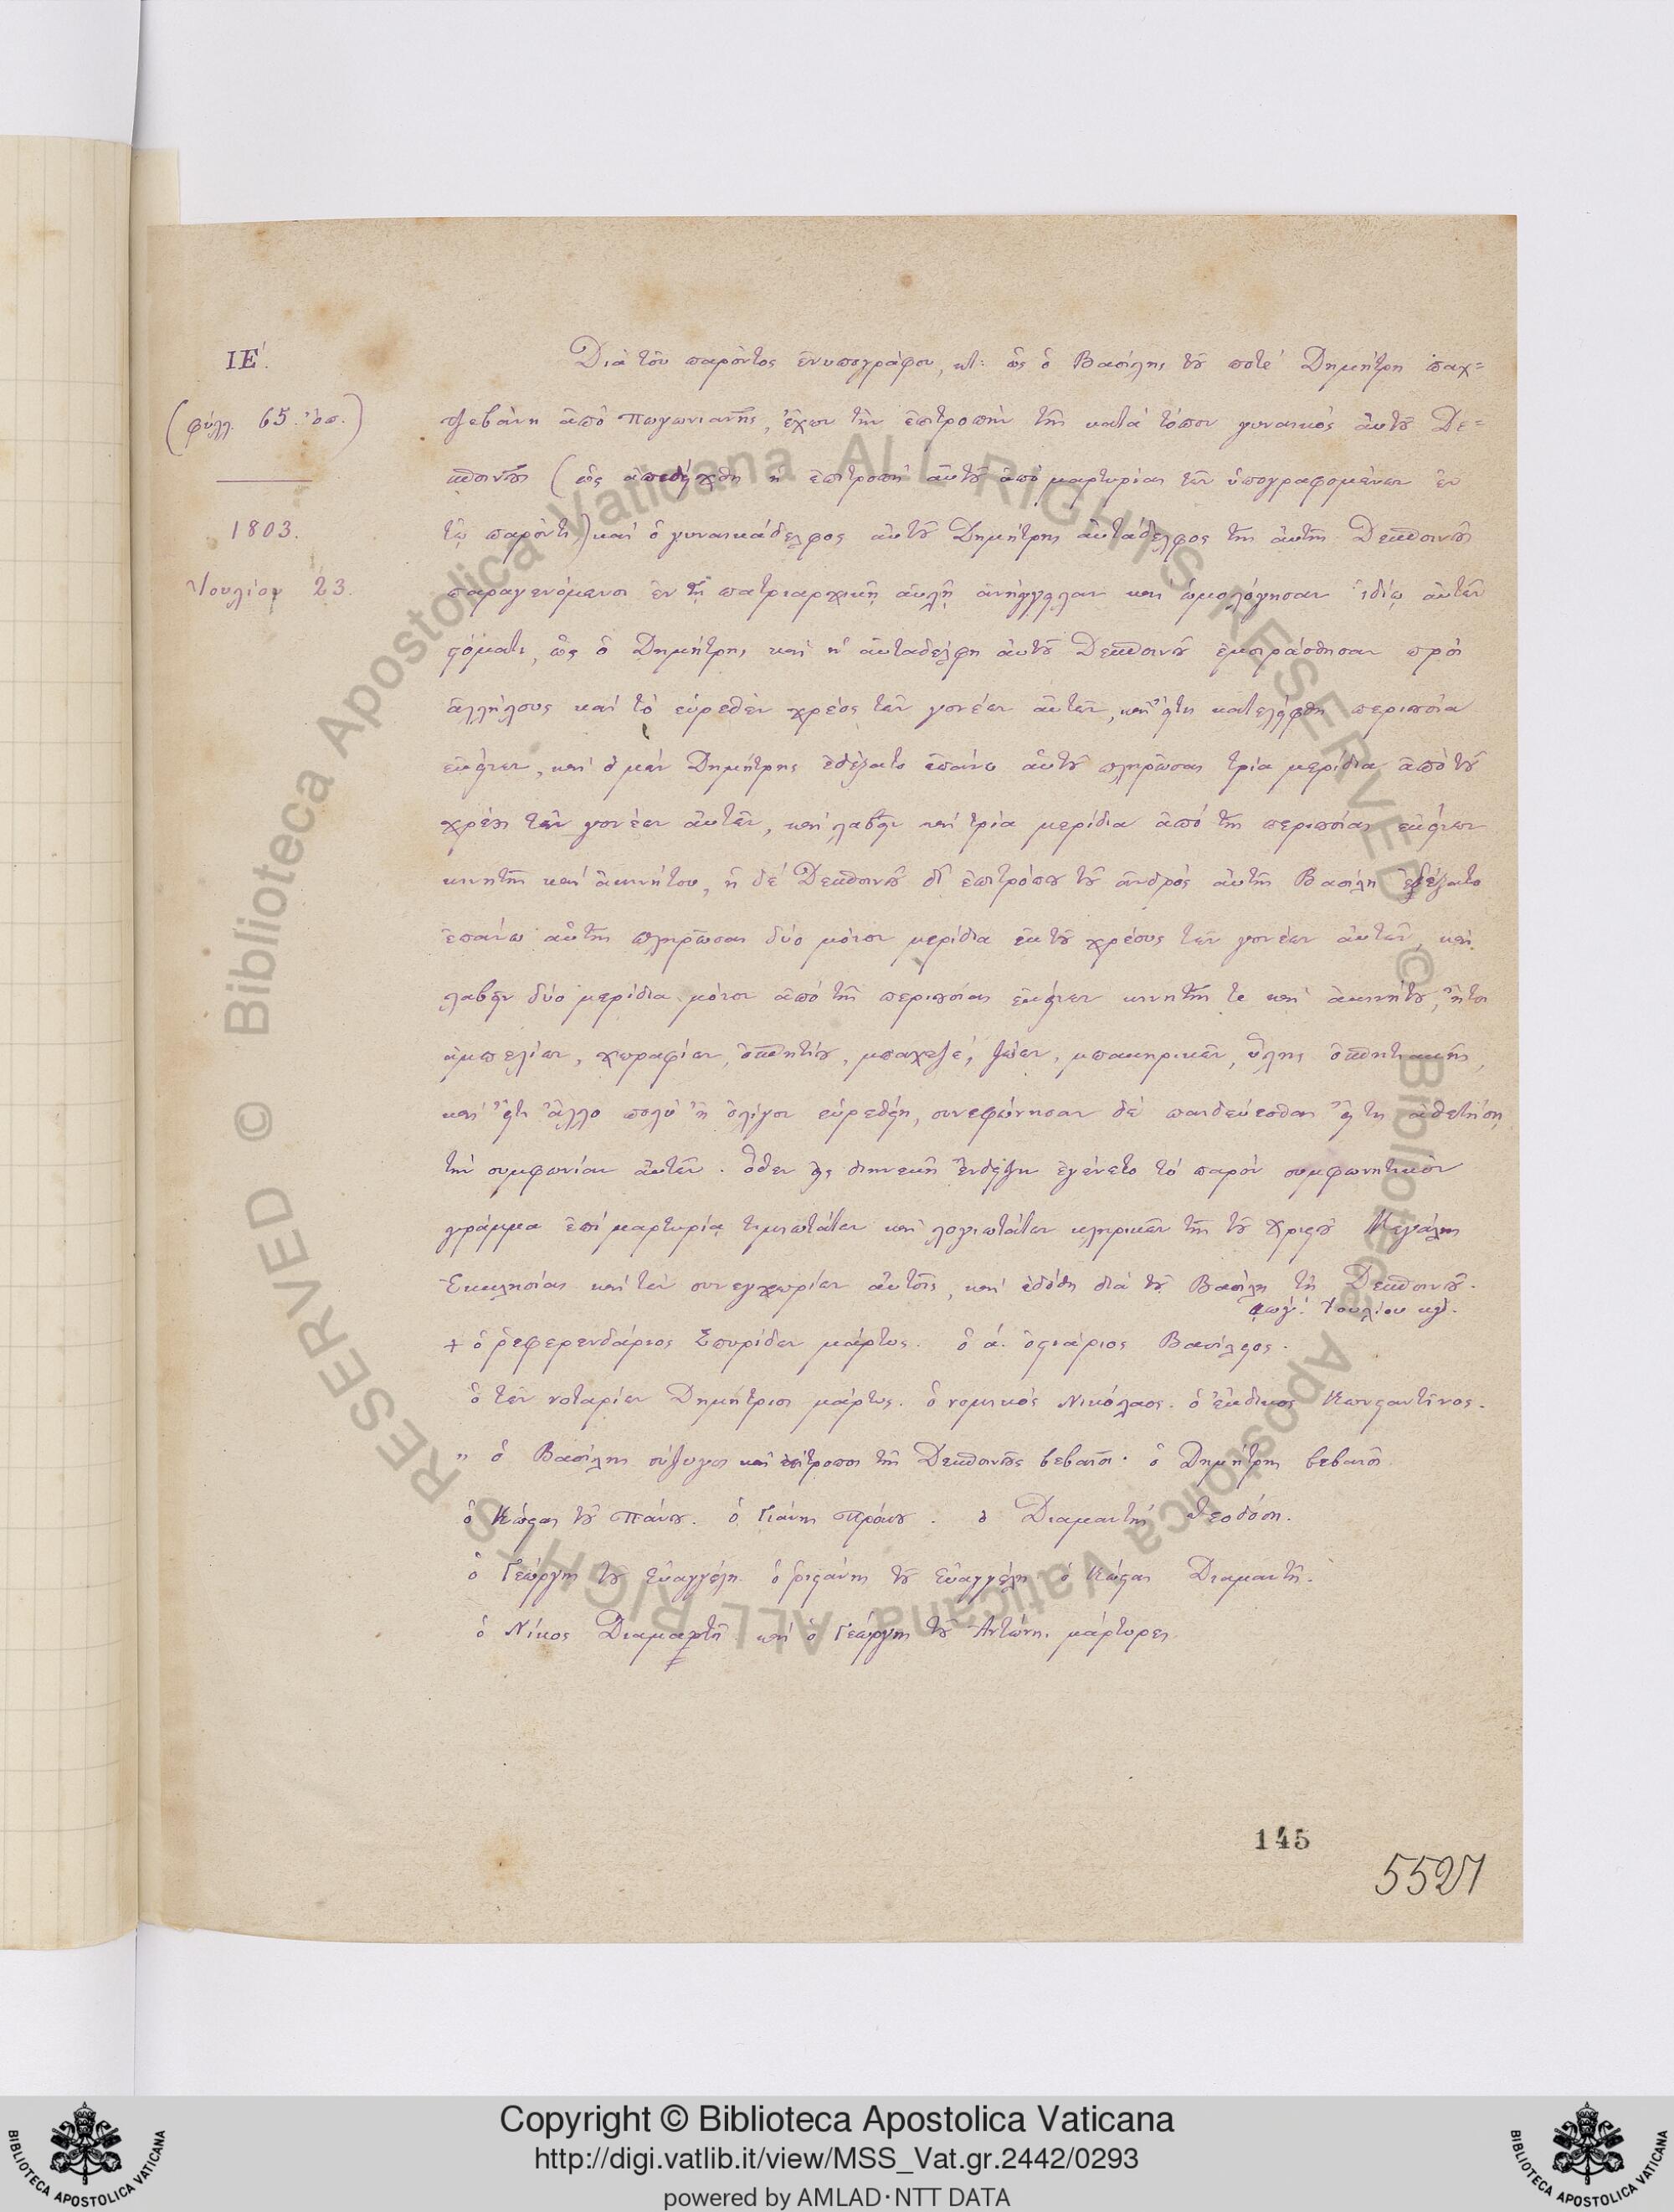 ΙΕ΄.
(φύλλ. 65. ὄπ.)
1803.
Ἰουλίου 23.
Διὰ τοῦ παρόντος ἐνυπογράφου, κτ: ὡς ὁ Βασίλης τοῦ ποτὲ Δημήτρη παχ=
τζεβάνη ἀπὸ Πωγωνιανῆς, ἔχων τὴν ἐπιτροπὴν τῆς κατὰ τόπον γυναικὸς αὐτοῦ Δε=
σποινοῦς (ὡς ἀπεδείχθη ἡ ἐπιτροπὴ αὐτοῦ ἀπὸ μαρτυρίας τῶν ὑπογραφομένων ἐν
τῷ παρόντι) καὶ ὁ γυναικάδελφος αὐτοῦ Δημήτρης αὐτάδελφος τῆς αὐτῆς Δεσποινοῦς
παραγενόμενοι ἐν τῇ πατριαρχικῇ αὐλῇ ἀνήγγειλαν καὶ ὡμολόγησαν ἰδίῳ αὐτῶν
στόματι, ὡς ὁ Δημήτρης καὶ ἡ αὐταδέλφη αὐτοῦ Δεσποινοῦ ἐμοιράσθησαν πρὸς
ἀλλήλους καὶ τὸ εὑρεθὲν χρέος τῶν γονέων αὐτῶν, καὶ ἥτις κατελείφθη περιουσία
ἐκείνων, καὶ ὁ μὲν Δημήτρης ἐδέξατο ἐπάνω αὐτοῦ πληρῶσαι τρία μερίδια ἀπὸ τοῦ
χρέους τῶν γονέων αὐτῶν, καὶ λαβεῖν καὶ τρία μερίδια ἀπὸ τῆς περιουσίας ἐκείνων
κινητῆς καὶ ἀκινήτου, ἡ δὲ Δεσποινοῦ δι' ἐπιτρόπου τοῦ ἀνδρὸς αὐτῆς Βασίλη ἐδέξατο
ἐπάνω αὐτῆς πληρῶσαι δύο μόνον μερίδια ἐκ τοῦ χρέους τῶν γονέων αὐτῶν, καὶ
λαβεῖν δύο μερίδια μόνον ἀπὸ τῆς περιουσίας ἐκείνων κινητῆς τε καὶ ἀκινήτου, ἤτοι
ἀμπελίων, χωραφίων, ὁσπητίου, μπαχτζέ, ζώων, μπακηρικῶν, ὕλης ὁσπητιακῆς,
καὶ εἴτι ἄλλο πολὺ ἢ ὀλίγον εὑρεθείη, συνεφώνησαν δὲ παιδεύεσθαι εἴ τις ἀθετήσῃ
τὴν συμφωνίαν αὐτῶν. ὅθεν εἰς διηνεκῆ ἔνδειξιν ἐγένετο τὸ παρὸν συμφωνητικὸν
γράμμα ἐπὶ μαρτυρίᾳ τιμιωτάτων καὶ λογιωτάτων κληρικῶν τῆς τοῦ Χριστοῦ Μεγάλης
Ἐκκλησίας καὶ τῶν συνεγχωρίων αὐτοῖς, καὶ ἐδόθη διὰ τοῦ Βασίλη τῇ Δεσποινοῦ.
αωγ΄. Ἰουλίου κγ΄.
+ ὁ ῥεφερενδάριος Σπυρίδων μάρτυς. ὁ α΄. ὀστιάριος Βασίλειος.
ὁ τῶν νοταρίων Δημήτριος μάρτυς. ὁ νομικὸς Νικόλαος. ὁ ἔκδικος Κωνσταντῖνος.
" ὁ Βασίλης σύζυγος καὶ ἐπίτροπος τῆς Δεσποινοῦς βεβαιοῖ. ὁ Δημήτρης βεβαιοῖ
ὁ Κώστας τοῦ Πάνου. ὁ Γιάνης Πρόνου. ὁ Διαμαντὴς Θεοδόση.
ὁ Γεώργης τοῦ Εὐαγγέλη. ὁ στεφάνης τοῦ Εὐαγγέλη ὁ Κώστας Διαμαντῆ.
ὁ Νίκος Διαμαντῆ καὶ ὁ Γεώργης τοῦ Ἀντώνη. μάρτυρες.
145
5527
© Biblioteca Apostolica Vaticana ALL RIGHTS RESERVED © Biblioteca Apostolica Vaticana ALL RIGHTS RESERVED
BIBLIOTECA APOSTOLICA VATICANA
Copyright © Biblioteca Apostolica Vaticana
http://digi.vatlib.it/view/MSS_Vat.gr.2442/0293
powered by AMLAD・NTT DATA
BIBLIOTECA APOSTOLICA VATICANA